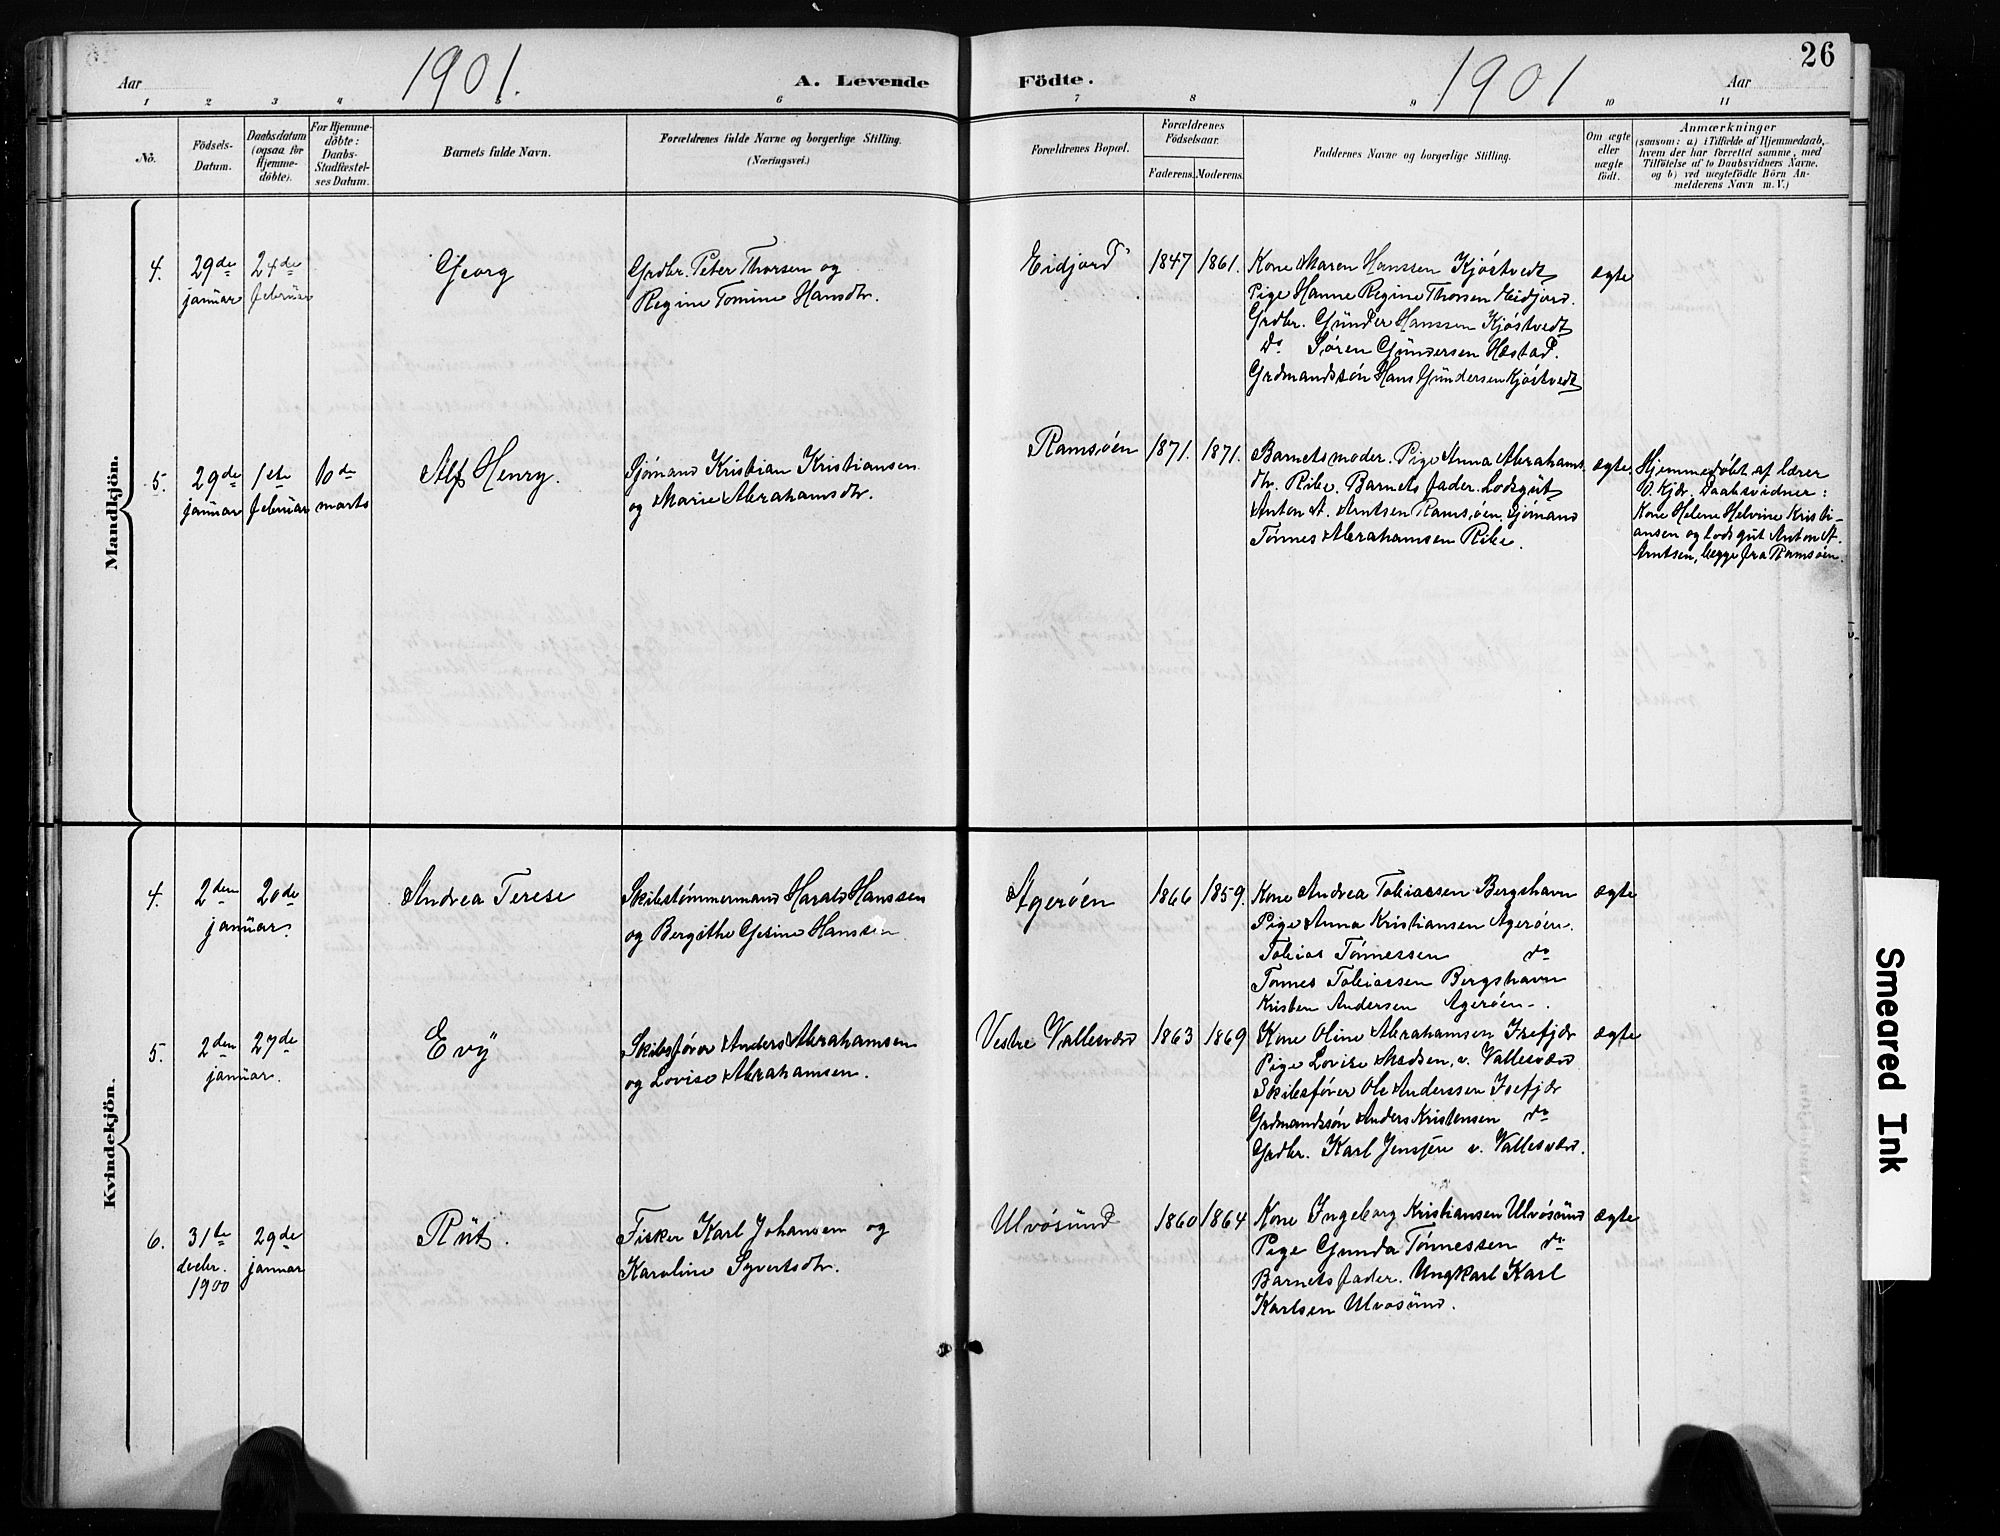 26
Aar 1901. A. Levende Födte. 1901 Aar
1 2 3 4 5 6 7 8 9 10 11
No.
Födsels-
Datum.
Daabsdatum
(ogsaa for
Hjemme-
döbte).
For Hjemme-
döbte:
Daabs-
Stadfæstel-
ses Datum.
Barnets fulde Navn.
Forældrenes fulde Navne og borgerlige Stilling.
(Næringsvei.)
Forældrenes Bopæl.
Forældrenes
Födselsaar.
Faderens. Moderens.
Faddernes Navne og borgerlige Stilling.
Om ægte
eller
uægte
födt.
Anmærkninger
(saasom: a) i Tilfælde af Hjemmedaab,
hvem der har forrettet samme, med
Tilföielse af to Daabsvidners Navne,
og b) ved uægtefödte Börn An-
melderens Navn m. V.)
Mandkjön.
4.
29de
januar
24de
februar
Georg
Grdbr. Peter Thorsen og
Regine Tomine Hansdtr.
Eidjord
1847 1861.
Kone Maren Hanssen Kjöstvedt
Pige Hanne Regine Thorsen Eidjord.
Grdbr. Gunder Hanssen Kjöstvedt
do Sören Gundersen Hæstad.
Grdmandssön Hans Gundersen Kjöstvedt
ægte
5.
29de
januar
1ste
februar
10de
marts
Alf Henry.
Sjömand Kristian Kristiansen
og Marie Abrahamsdtr.
Ramsöen
1871. 1871.
Barnets moder. Pige Anna Abrahams
dtr. Ribe. Barnets fader. Lodsgut
Anton A. Arntsen Ramsöen. Sjömand
Tönnes Abrahamsen Ribe.
ægte
Hjemmedöbt af lærer
O. Kjær. Daabsvidner:
Kone Helene Helvine Kristi-
ansen og Lodsgut Anton A.
Arntsen, begge fra Ramsöen.
Kvindekjön.
4.
2den 20de
januar.
Andrea Terese
Skibstömmermand Harald Hanssen
og Bergithe Gesine Hanssen
Ageröen
1866 1859.
Kone Andrea Tobiassen Bergshavn
Pige Anna Kristiansen Ageröen.
Tobias Tönnessen do
Tönnes Tobiassen Bergshavn
Kristen Andersen Ageröen.
ægte
5.
2den 27de
januar.
Evy
Skibsförer Anders Abrahamsen
og Lovise Abrahamsen.
Vestre Vallesværd
1863 1869
Kone Oline Abrahamsen Isefjær
Pige Lovise Madsen, v. Vallesværd
Skibsförer Ole Anderssen Isefjær
Grdmandssön Anders Kristensen do
Grdbr. Karl Jenssen v. Vallesværd.
ægte
6.
31te
decbr.
1900
29de
januar
Rut.
Fisker Karl Johansen og
Karoline Syvertsdtr.
Ulvösund
1860 1864
Kone Ingeborg Kristiansen Ulvösund
Pige Gunda Tönnessen do
Barnets fader. Ungkarl Karl
Karlsen Ulvösund.
ægte
Smeared Ink